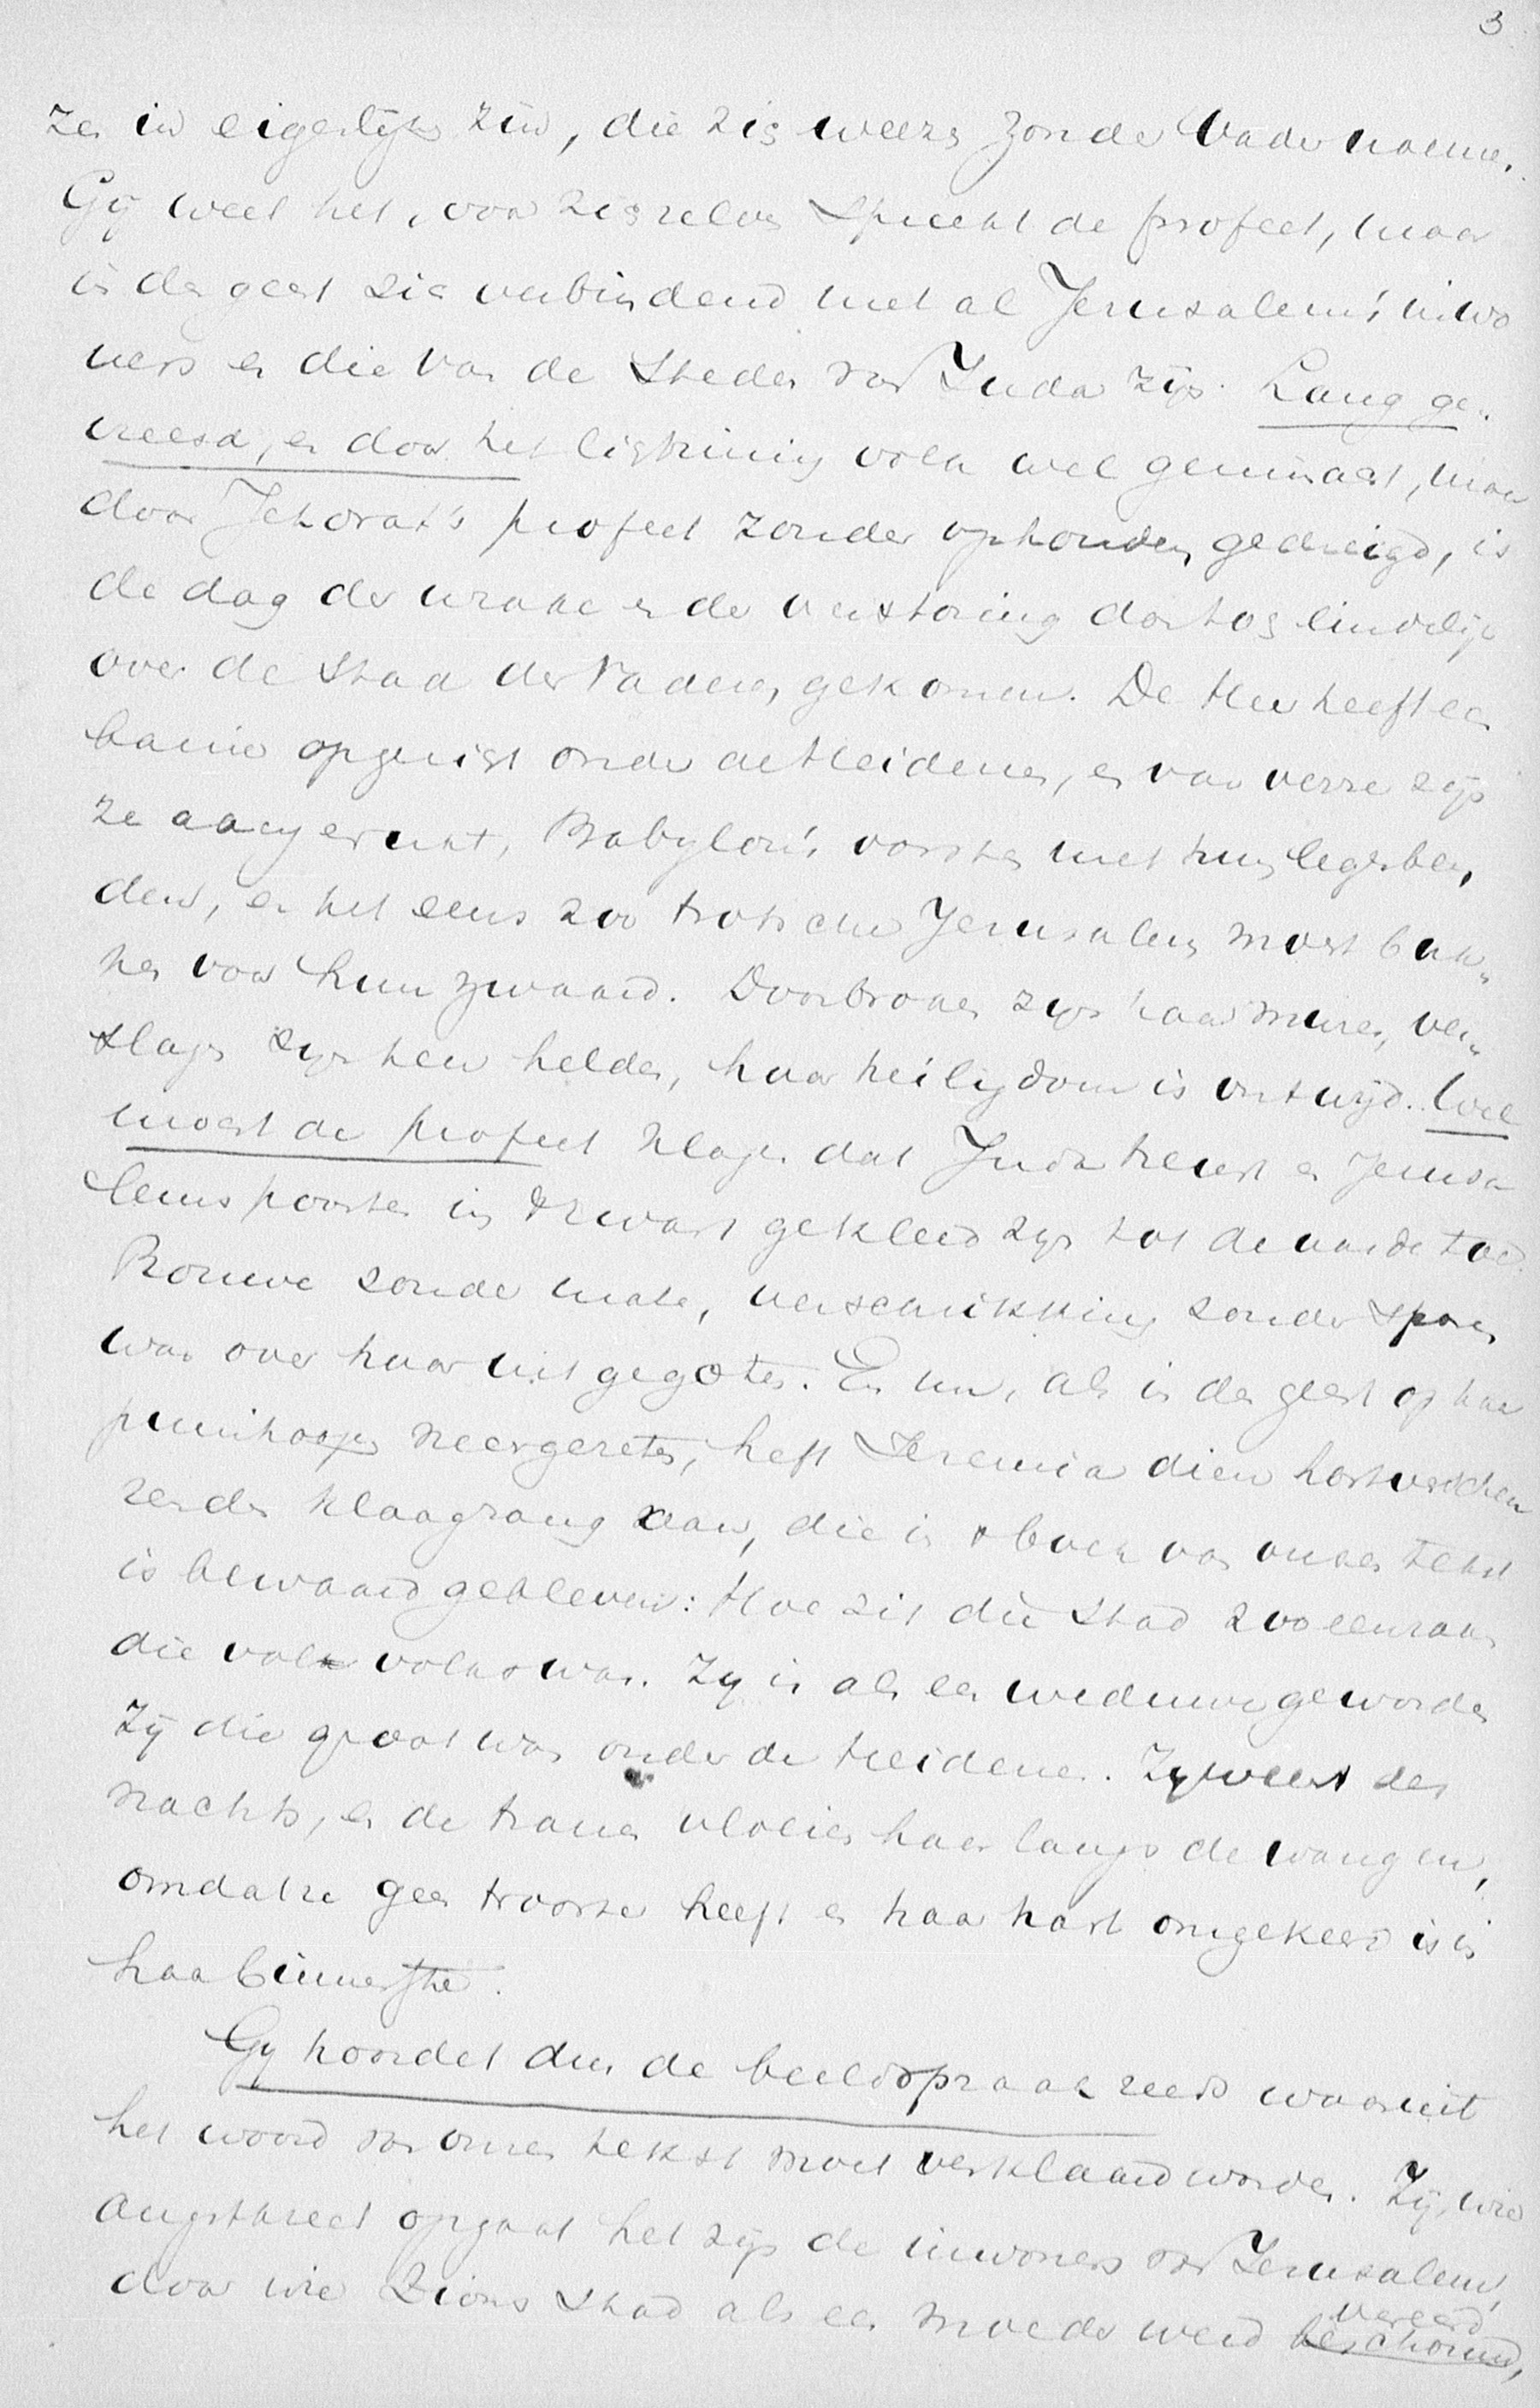 3
zen in eigenlijken zin, die zich weezen zonder Vader noemen.
Gij weet het, voor zich zelven spreekt de profeet, maar
in den geest zich verbindend met al Jerusalem's inwo
ners en die van de steden van Juda zijn. Lang ge„
vreesd, en door het ligtzinnig volk wel geminacht, maar
door Jehovah's profeet zonder ophouden gedreigd, is
de dag der wrake en der verstoring dan toch eindelijk
over de stad der Vaderen gekomen. De Heer heeft een
banier opgericht onder de Heidenen, en van verre zijn
ze aangerukt, Babylon's vorsten met hun legerben„
den, en het eens zoo trotsche Jerusalem moest buk„
ken voor hun zwaard. Doorbroken zijn haar muren, ver„
slagen zijn hen helden, haar heiligdom is ontwijd. Wel
moest de profeet klagen dat Juda treurt en Jerusa
lems poorten in 't zwart gekleed zijn tot de aarde toe.
Rouwe zonder mate, verschrikking zonder sparen
was over haar uitgegoten. En nu, als in den geest op haar
puinhoopen neergezeten, heft Jeremia dien hartverscheu
renden klaagzang aan, die in 't boek van onzen tekst
is bewaard gebleven: Hoe zit die stad zoo eenzaam
die vol volks was. Zij is als een weduwe geworden
Zij die groot was onder de Heidenen. Zij weent des
nachts, en de tranen vloeien haar langs de wangen,
omdat ze geen trooster heeft en haar hart omgekeerd is in
haar binnenste.
Gij hoordet dus de beeldspraak reeds waaruit
het woord van onzen tekst moet verklaard worden. Zij, wier
angstkreet opgaat het zijn de inwoners van Jerusalem,
door wie Zions stad als een moeder werd vereerd
beschouwd,